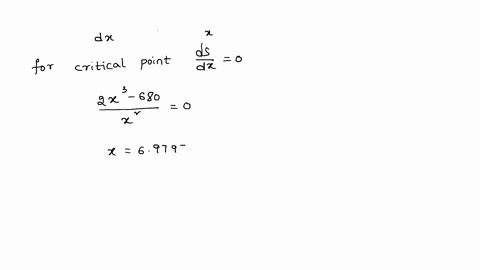 dx x
for critical point ds/dx = 0
2x³ - 680 / x² = 0
x = 6.979